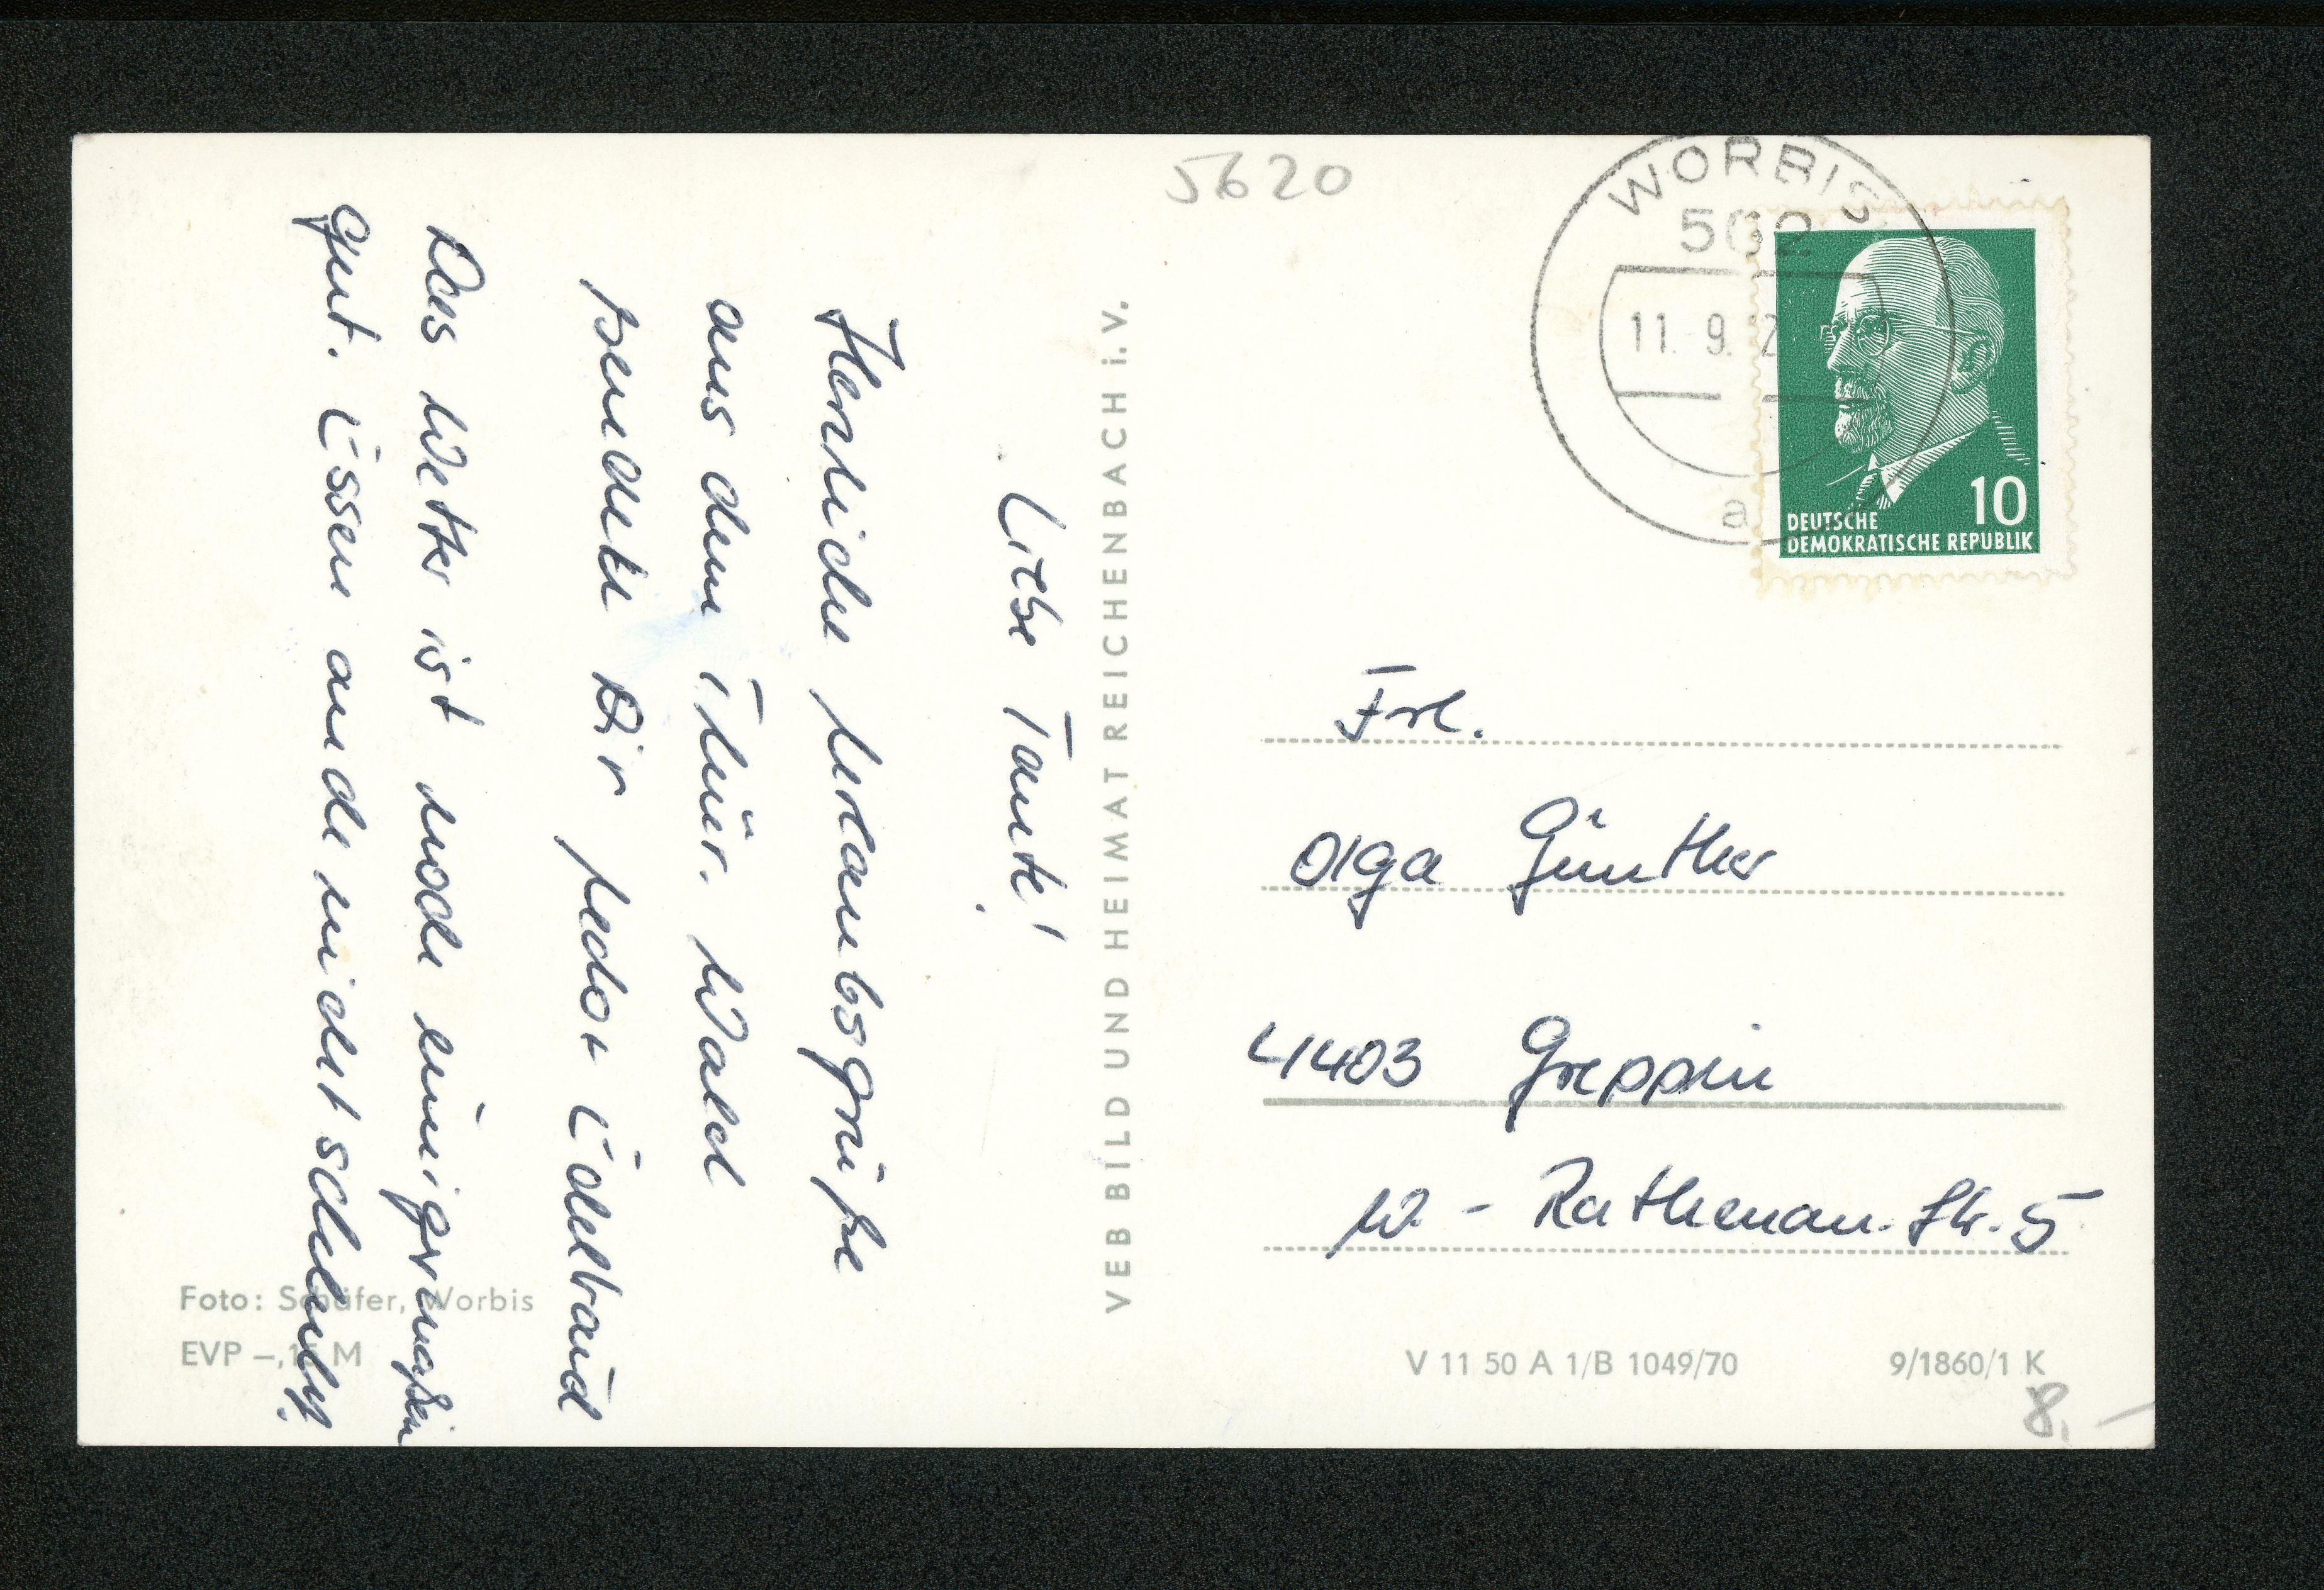 Liebe Tante!
Herzliche Urlaubsgrüße
aus dem Thür. Wald
sendet Dir Edelbraud
Das Wetter ist noch einigermaßen
gut. Essen auch nicht schlecht.
VEB BILD UND HEIMAT REICHENBACH i. V.
Foto: Schäfer, Worbis
EVP –,15 M
5620
WORBIS
562
11.-9.7
a
10
DEUTSCHE
DEMOKRATISCHE REPUBLIK
Frl.
Olga Günther
4403 Greppin
W.-Rathenau-Str. 5
V 11 50 A 1/B 1049/70 9/1860/1 K
8,–